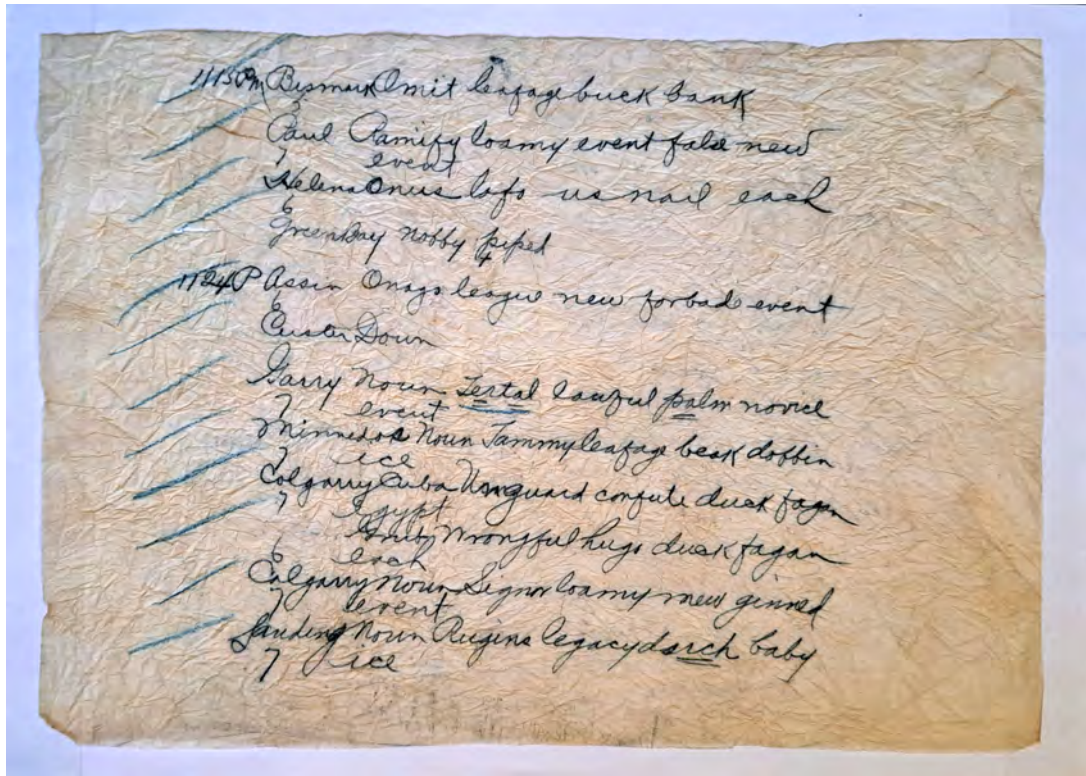 1115Pm Bismark Omit leafage buck bank
Paul Ramify loamy event false new
7 event
Helena Onus lofo us nail each
E
Green Bay nobby piped
1124P Assin Onago league new forbade event
E
Custer Down
Garry Noun Tertal lawful palm novice
7 event
Minnedos Noun Jammy leafage beak dobbin
7 ice
Calgarry Cuba Unguard confute duck fagan
7 Egypt
Wrongful hugo duck fagan
E each
Calgarry Noun Signor loamy mew ginned
7 event
Landing Noun Rugins legacy darch baby
7 ice